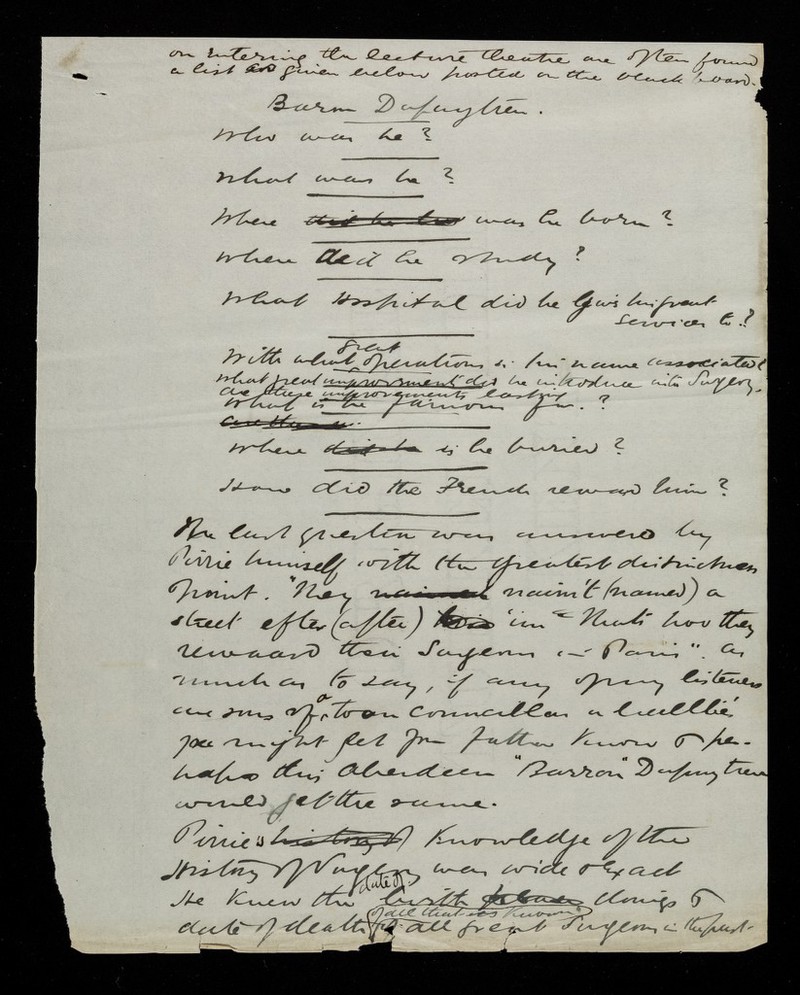 on entering the lecture theatre one often found
a list as given below posted on the black board.
Baron Dupuytren.
Who was he?
What was he?
Where did he was he born?
Where did he study?
What Hospital did he give his great
services to?
With what great operations is his name associated?
What great improvement did he introduce into Surgery.
are these improvements lasting
What is he famous for.?
are these
Where did he is he buried?
How did the French reward him?
The last question was answered by
Pirrie himself with the greatest distinctness
point. "They named naim't (named) a
street efter (after) his 'im" Thats hoo they
reward their Surgeons in Paris". As
much as to say, if any of my listeners
are sons of a town councillor or bailllie's
you might let your father know & per-
haps this Aberdeen "Barron" Dupuytren
would get the same.
Pirrie's history of Knowledge of the
History of Surgery was wide & exact
He knew the date of birth place doings &
date of death of all that was known of all great Surgeons in the past.